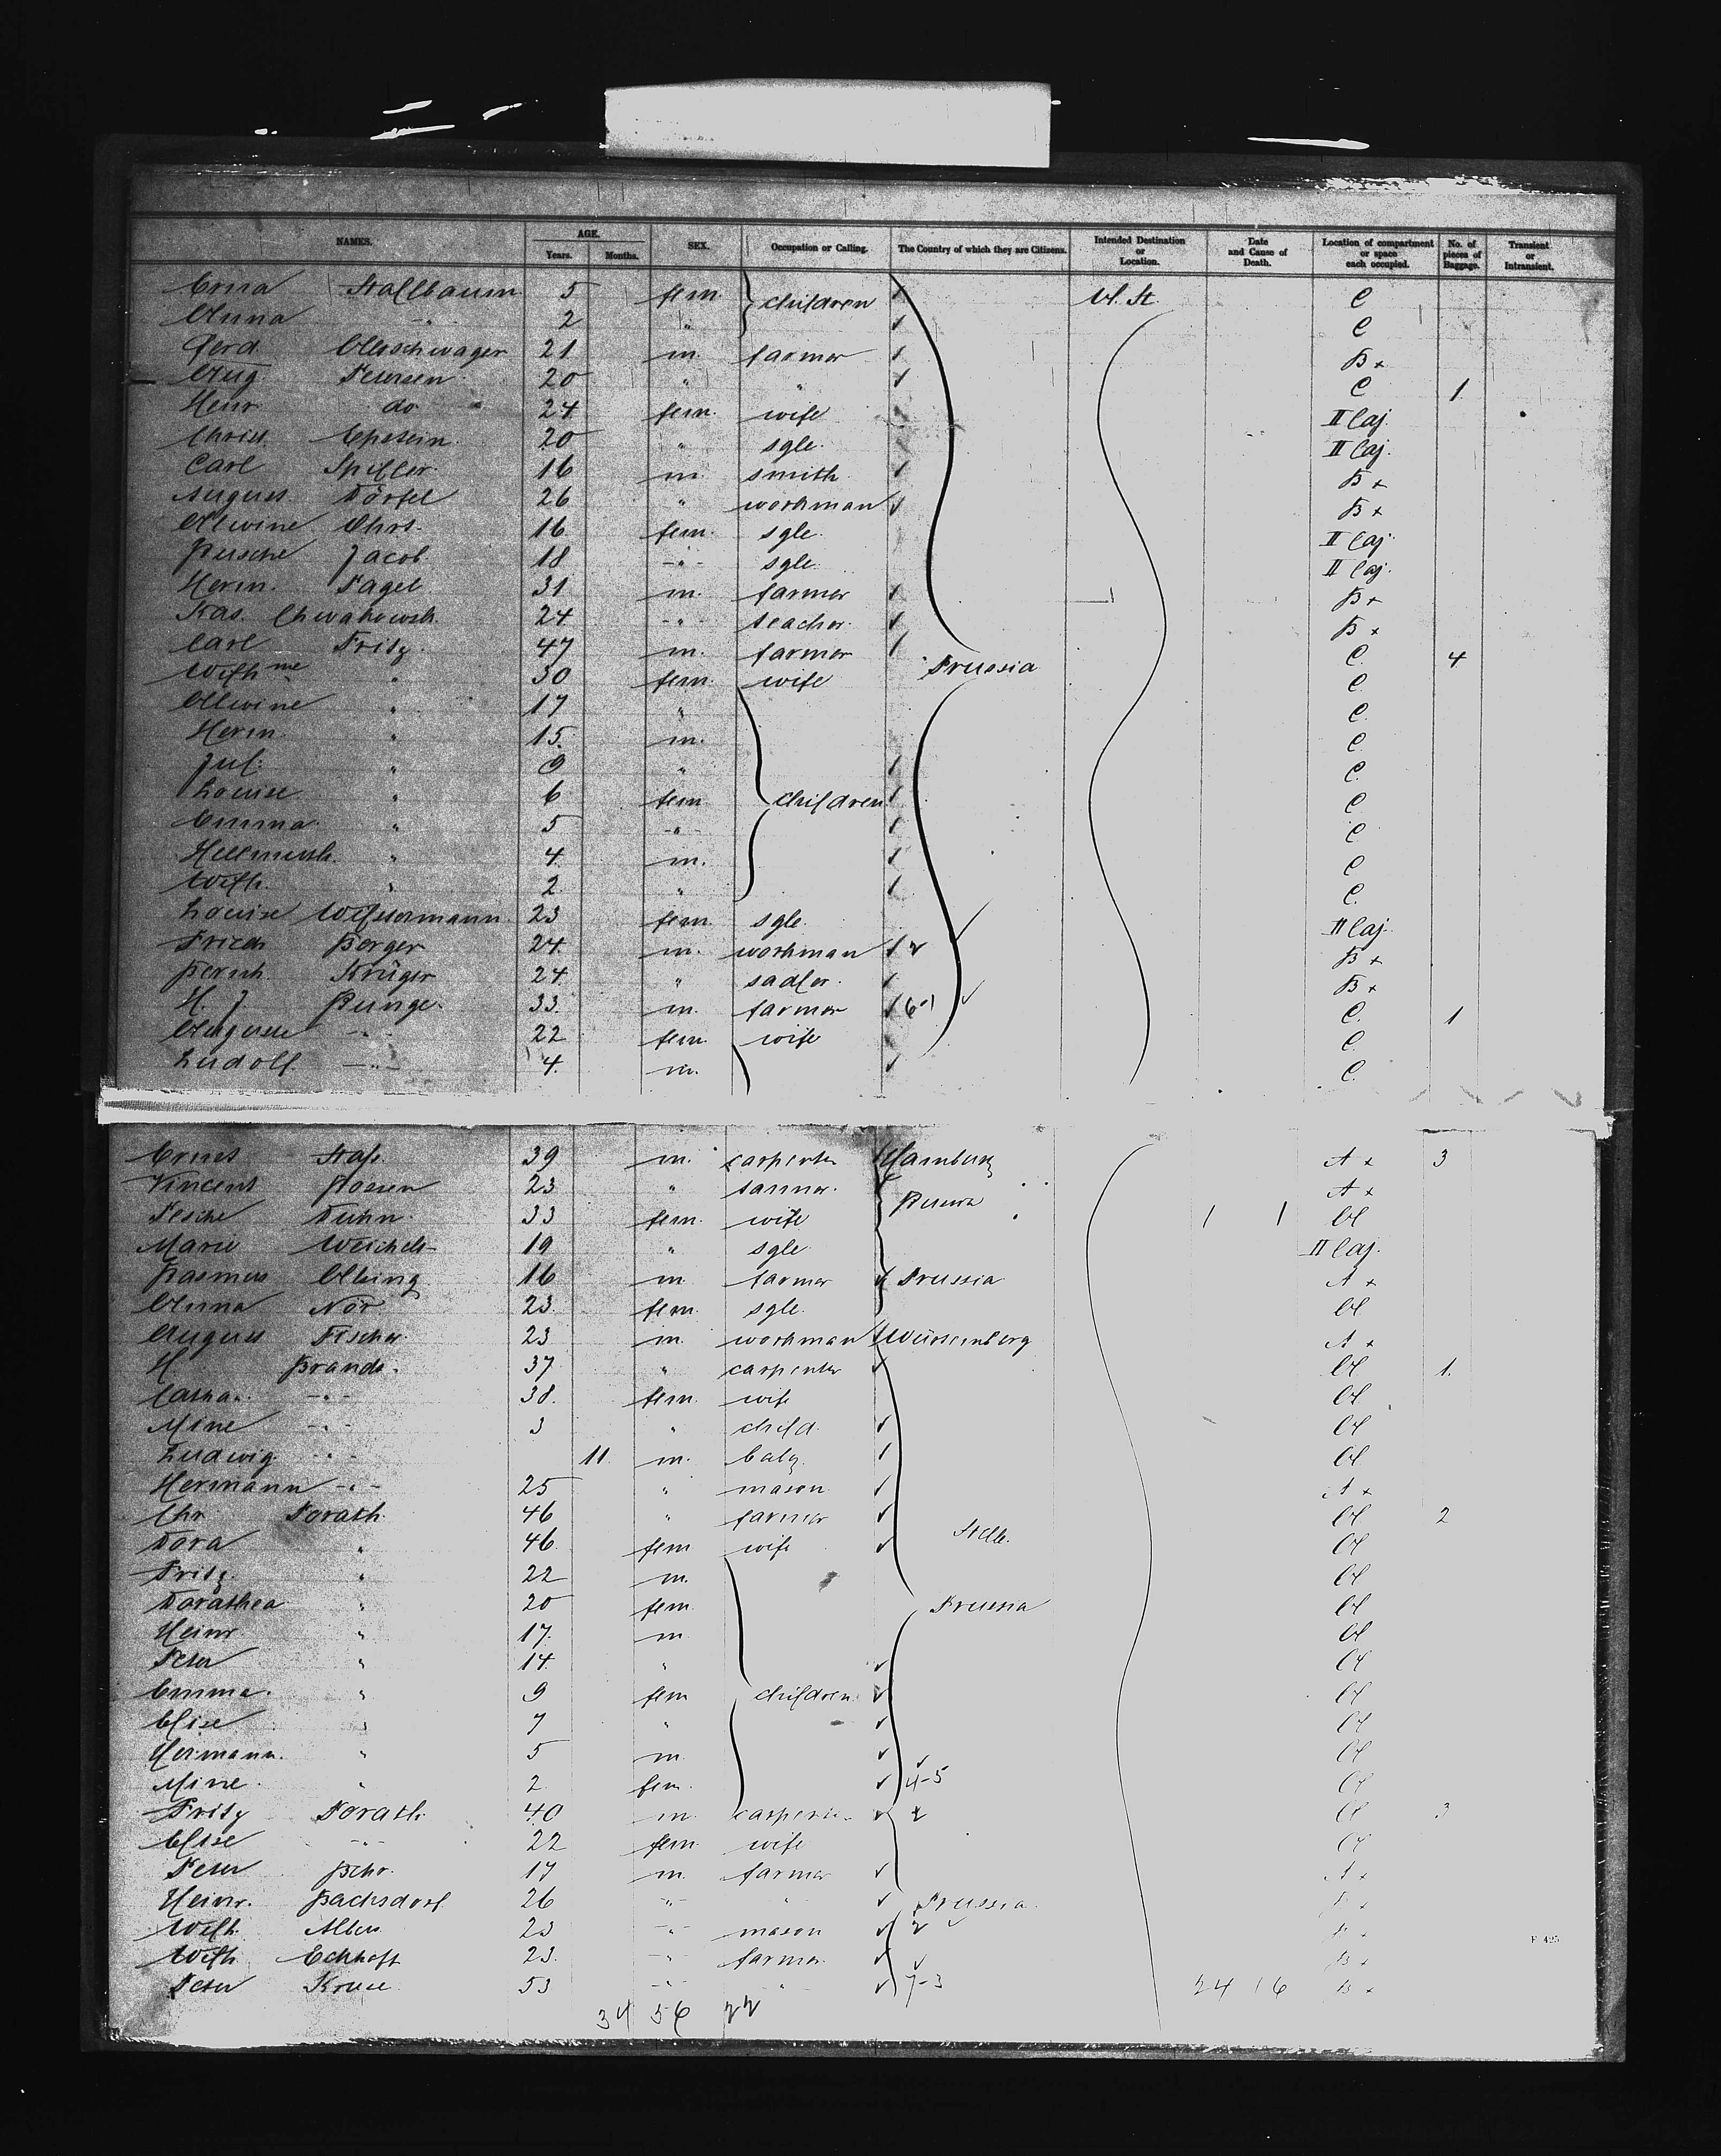 NAMES. AGE. Years. Months. SEX. Occupation or Calling. The Country of which they are Citizens. Intended Destination or Location. Date and Cause of Death. Location of compartment or space each occupied. No. of pieces of Baggage. Transient or Intransient.
Erna Stallbaum 5 fem. children U. St. C
Anna -"- 2 " C
Gerd. Ollerschwager 21 m. farmer B x
Aug Petersen 20 " " C 1
Heinr. do 24 fem. wife II Caj.
Christ. Epstein 20 " sgle. II Caj.
Carl Spiller 16 m. smith B x
August Dörfel 26 " workman B x
Alwine Ohrt. 16 fem. sgle. II Caj.
Jacob 18 -"- sgle. II Caj.
Herm. Pagel 31 m. farmer B x
Kas. 24 -"- teacher B x
Carl Fritz 47 m. farmer Prussia C. 4
Wilhme " 30 fem. wife C
Alwine " 17 " C.
Herm. " 15. m. C
Jul. " 9 " C.
Louise " 6 fem children C
Emma " 5 -"- C
Hellmuth " 4. m. C
Wilh. " 2. " C.
Louise Westermann 23 fem. sgle. II Caj.
Friedr Berger 24. m. workman B x
Krüger 24. " sadler. B x
H. J. Bunge. 33. m. farmer 6-1 C. 1
Auguste -"- 22 fem. wife C.
Ludolf. -"- 4. m. C.
Ernst 39 m. carpenter Hamburg A x 3
Vincent 23 " farmer. A x
Duhn. 33 fem. wife 1 1 A
Marie Weichelt 19 " sgle II Caj.
Rasmus Olling 16 m farmer Prussia A x
Anna Nör 23. fem. sgle. A
August Fischer 23 m. workman Würtemberg A x
H Brandt. 37 " carpenter A 1.
Catha. -"- 38. fem. wife A
Mine -"- 3 " child. A
Ludwig. -"- 11 m. baby A
Hermann -"- 25 " mason A x
Chr. Porath. 46 " farmer A 2
Dora " 46. fem wife A
Fritz. " 22 m. A
Dorathea " 20 fem. Prussia A
Heinr. " 17. m A
Peter " 14. " A
Emma. " 9 fem children A
Elise " 7 " A
Hermann. " 5 m A
Mine. " 2 fem. 4-5 A
Fritz Porath 40 m. carpenter A 3
Elise -"- 22 fem. wife A
Peter Behr. 17 m. farmer A x
Heinr. Bachsdorf 26 -"- " Prussia.
Wilh. Albers 23 -"- mason
Wilh. Eckhoff 23. -"- farmer. B x
Peter Kruse 53 -"- " 7-3 24 16 B x
34 56 22